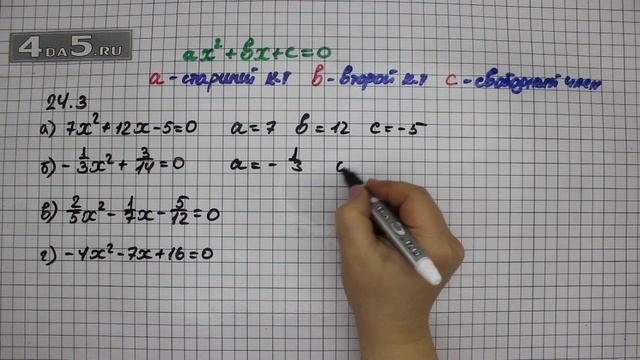 4DA5.RU
ax² + bx + c = 0
a - старший к.т b - второй к.т c - свободный член
24.3
а) 7x² + 12x - 5 = 0 a = 7 b = 12 c = -5
б) -1/3x² + 3/14 = 0 a = -1/3
в) 2/5x² - 1/7x - 5/12 = 0
г) -4x² - 7x + 16 = 0